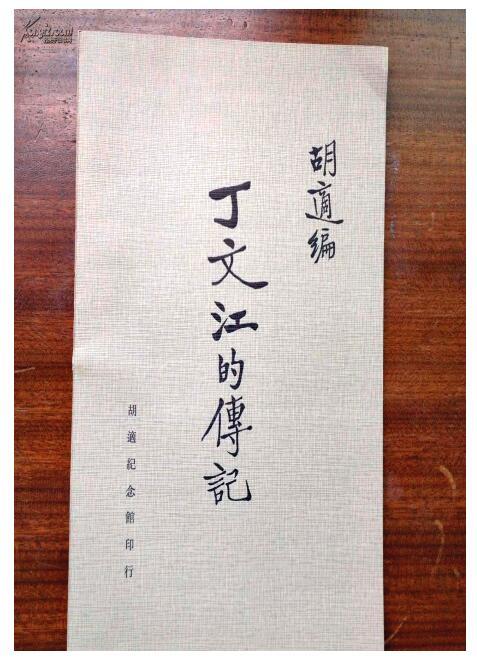 胡適编
丁文江的傳記
胡適紀念館印行